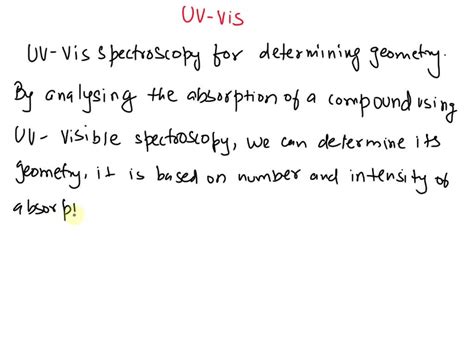 UV-Vis
UV-Vis spectroscopy for determining geometry.
By analysing the absorption of a compound using
UV- visible spectroscopy, we can determine its
geometry, it is based on number and intensity of
absorp